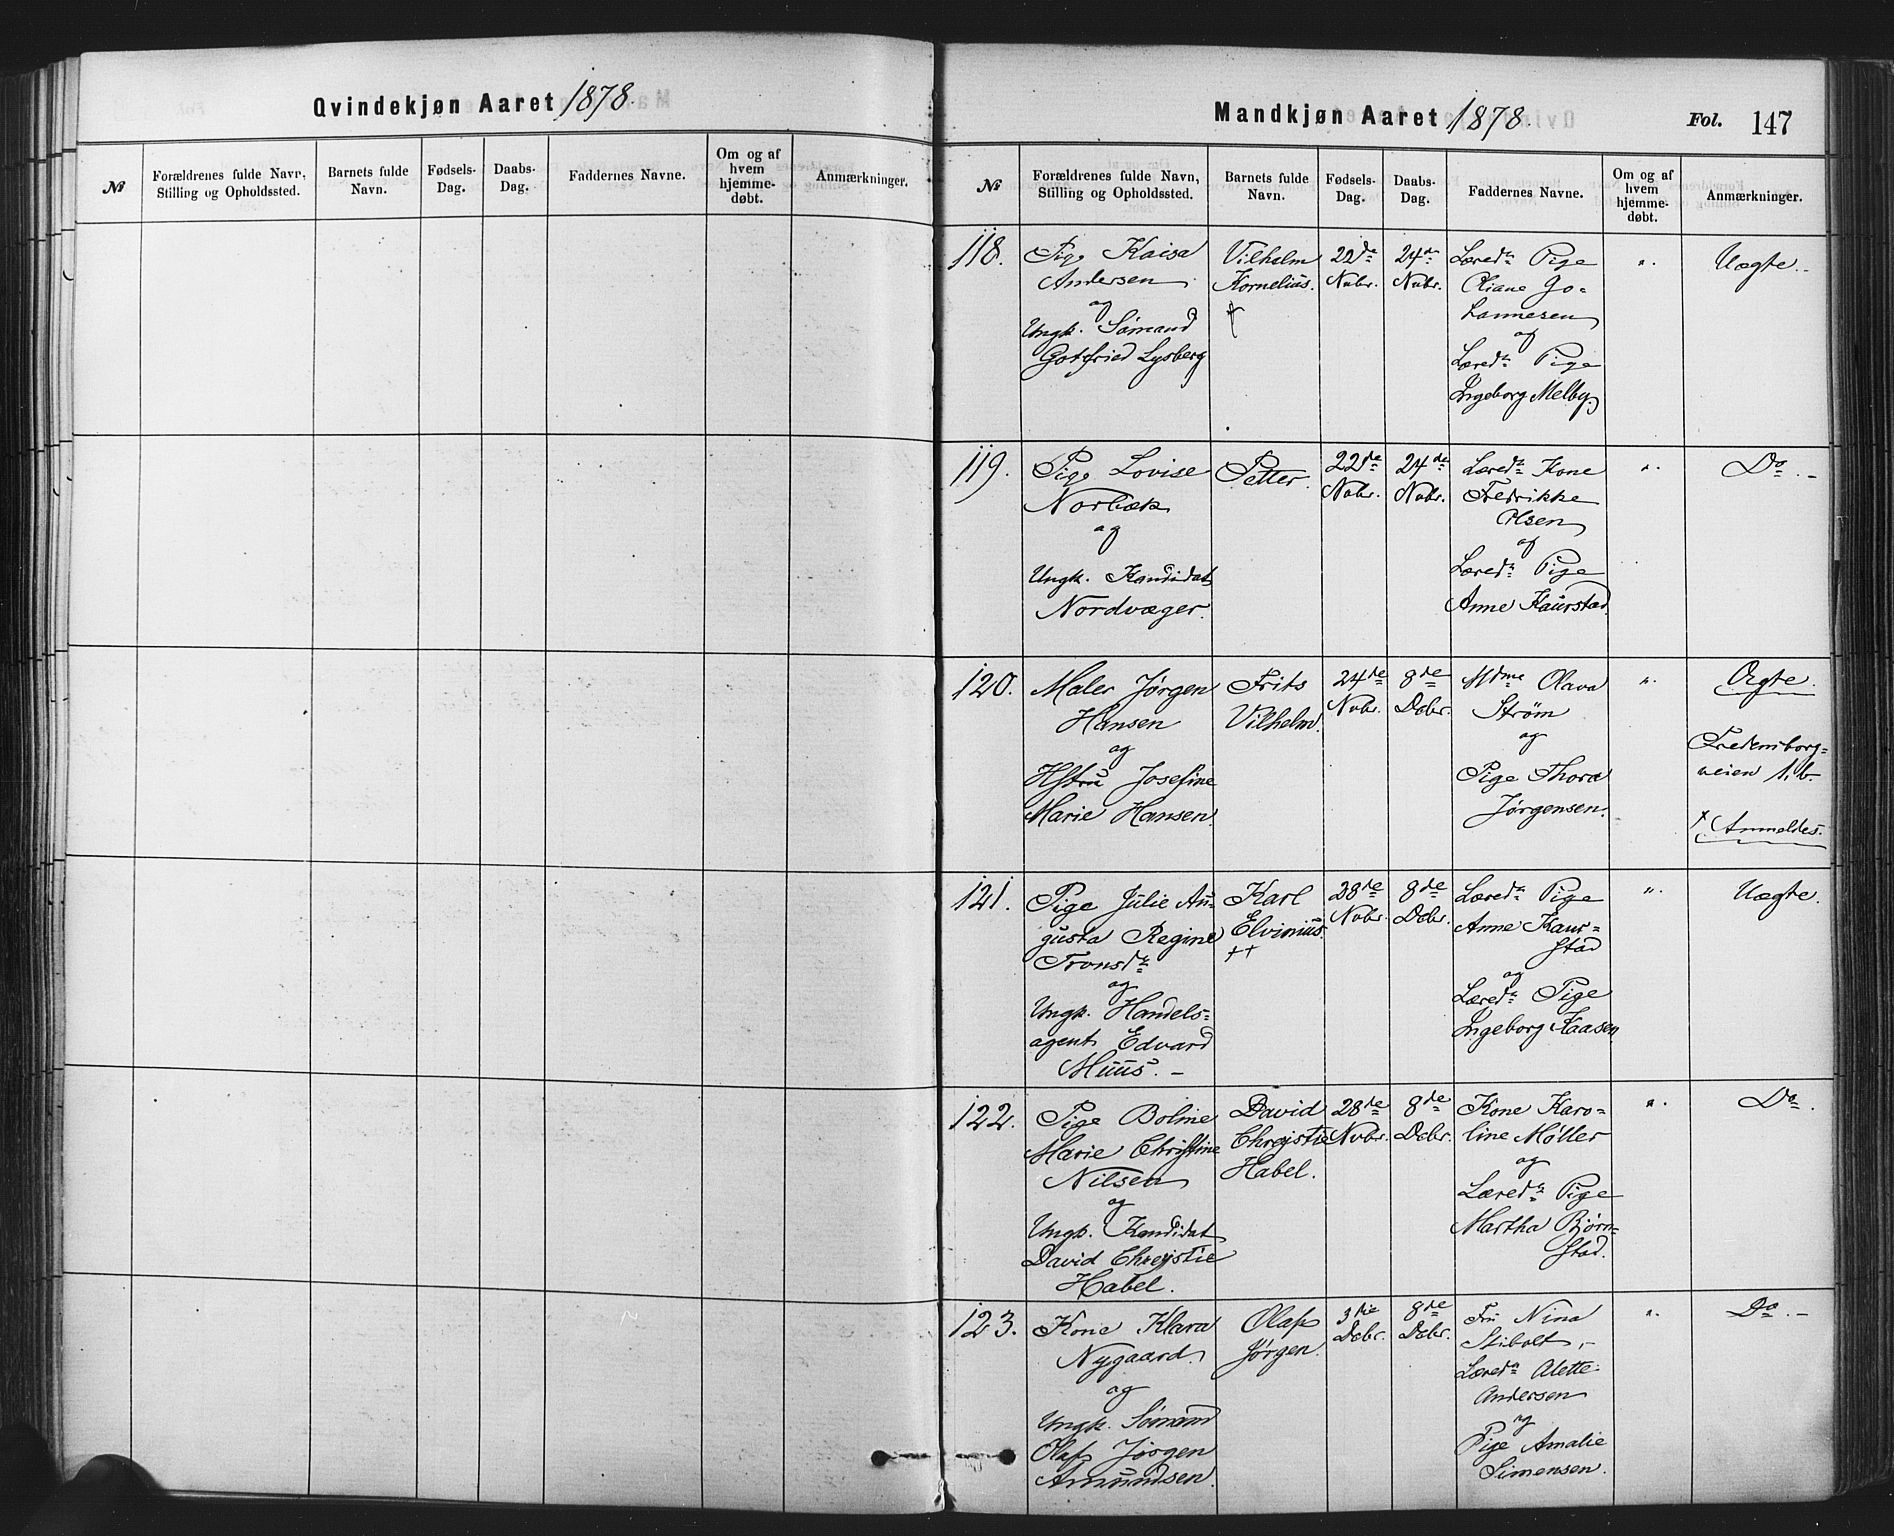 Qvindekjøn Aaret 1878.
№
Forældrenes fulde Navn,
Stilling og Opholdssted.
Barnets fulde
Navn.
Fødsels-
Dag.
Daabs-
Dag.
Faddernes Navne.
Om og af
hvem
hjemme-
døbt.
Anmærkninger.
Mandkjøn Aaret 1878.
Fol. 147
№
Forældrenes fulde Navn,
Stilling og Opholdssted.
Barnets fulde
Navn.
Fødsels-
Dag.
Daabs-
Dag.
Faddernes Navne.
Om og af
hvem
hjemme-
døbt.
Anmærkninger.
118.
Pige Kaisa
Andersen
og
Ungk. Sømand
Gotfried Lysberg
Vilhelm
Kornelius.
†
22de
Nvbr.
24de
Nvbr.
Læred. Pige
Oliane Jo-
hannesen
og
Læred. Pige
Ingeborg Melby.
".
Uægte. -
119.
Pige Lovise
Norbæk
og
Ungk. Kandidat
Nordvæger.
Petter.
22de
Nvbr.
24de
Nvbr.
Læred. Kone
Fredrikke
Olsen
og
Læred. Pige
Anne Kaurstad.
".
Do. -
120.
Maler Jørgen
Hansen
og
Hstru Josefine
Marie Hansen.
Frits
Vilhelm.
24de
Nvbr.
8de
Dcbr.
Mdme Olava
Strøm
og
Pige Thora
Jørgensen.
".
Ægte.
Fredensborg=
veien 1. b.
† Anmeldes.
121.
Pige Julie Au-
gusta Regine
Tronsd.
og
Ungk. Handels=
agent Edvard
Muus. -
Karl
Elvinius.
††
28de
Nvbr.
8de
Dcbr.
Læred. Pige
Anne Kaur=
stad
og
Læred. Pige
Ingeborg Kaasen
".
Uægte.
122.
Pige Boline
Marie Christine
Nilsen
og
Ungk. Kandidat
David Chrystie
Habel.
David
Chrystie
Habel.
28de
Nvbr.
8de
Dcbr.
Kone Karo-
line Møller
og
Læred. Pige
Martha Bjørn=
stad.
".
Do.
123.
Kone Klara
Nygaard
og
Ungk. Sømand
Olaf Jørgen
Amundsen.
Olaf
Jørgen.
3die
Dcbr.
8de
Dcbr.
Fru Nina
Stibolt, -
Læred. Alette
Andersen
og
Pige Amalie
Simensen.
".
Do. -